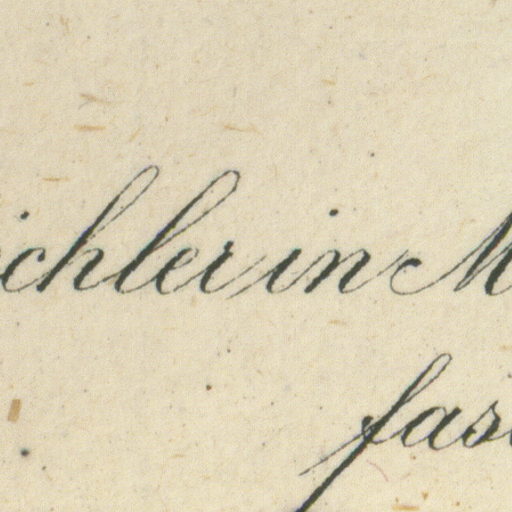 ichler in M
fas